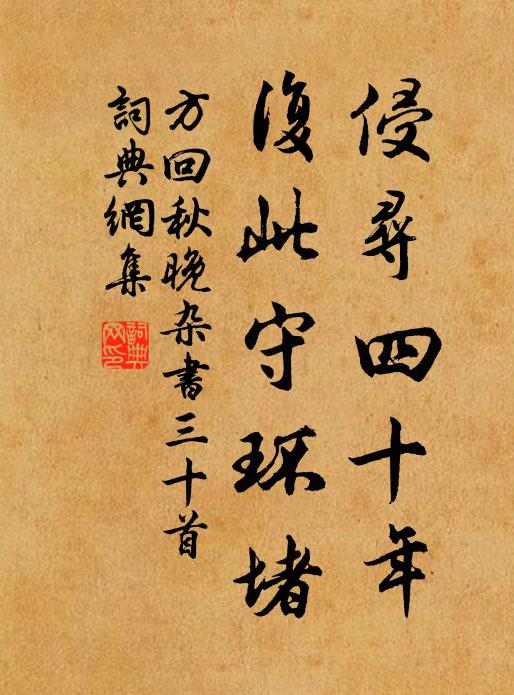 侵尋四十年
復此守环堵
方回秋晚杂書三十首
詞典網集
詞典网印